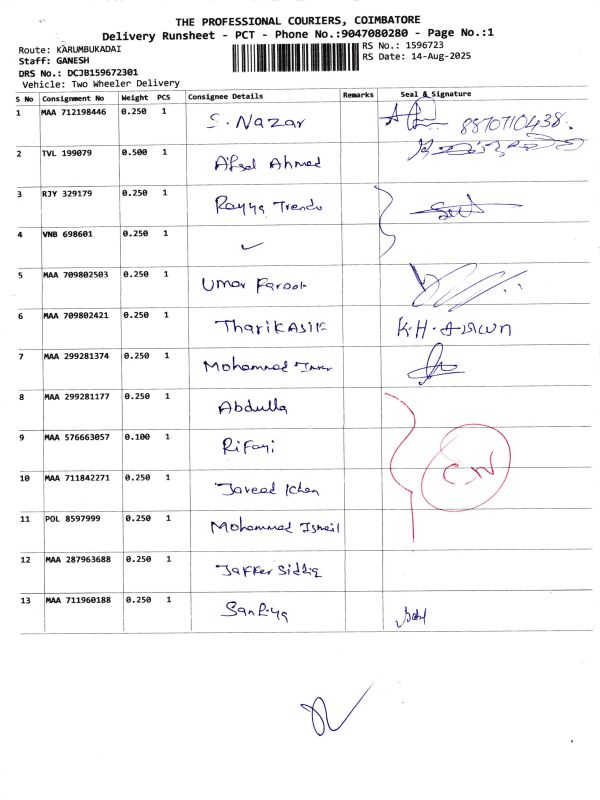 THE PROFESSIONAL COURIERS, COIMBATORE
Delivery Runsheet - PCT - Phone No.:9047080280 - Page No.:1
Route: KARUMBUKADAI
RS No.: 1596723
Staff: GANESH
RS Date: 14-Aug-2025
DRS No.: DCJB159672301
Vehicle: Two Wheeler Delivery
S No Consignment No Weight PCS Consignee Details Remarks Seal & Signature
1 MAA 712198446 0.250 1 S. Nazar 8870710438.
2 TVL 199079 0.500 1 Afsal Ahmed
3 RJY 329179 0.250 1 Rayya Trends
4 VNB 698601 0.250 1 ✓
5 MAA 709802503 0.250 1 Umar Farook
6 MAA 709802421 0.250 1 Tharikasik K.H.
7 MAA 299281374 0.250 1 Mohammed
8 MAA 299281177 0.250 1 Abdulla
9 MAA 576663057 0.100 1 Rifayi
10 MAA 711842271 0.250 1 Javeed Khan C.N
11 POL 8597999 0.250 1 Mohammed Ismail
12 MAA 287963688 0.250 1 Jaffer Siddiq
13 MAA 711960188 0.250 1